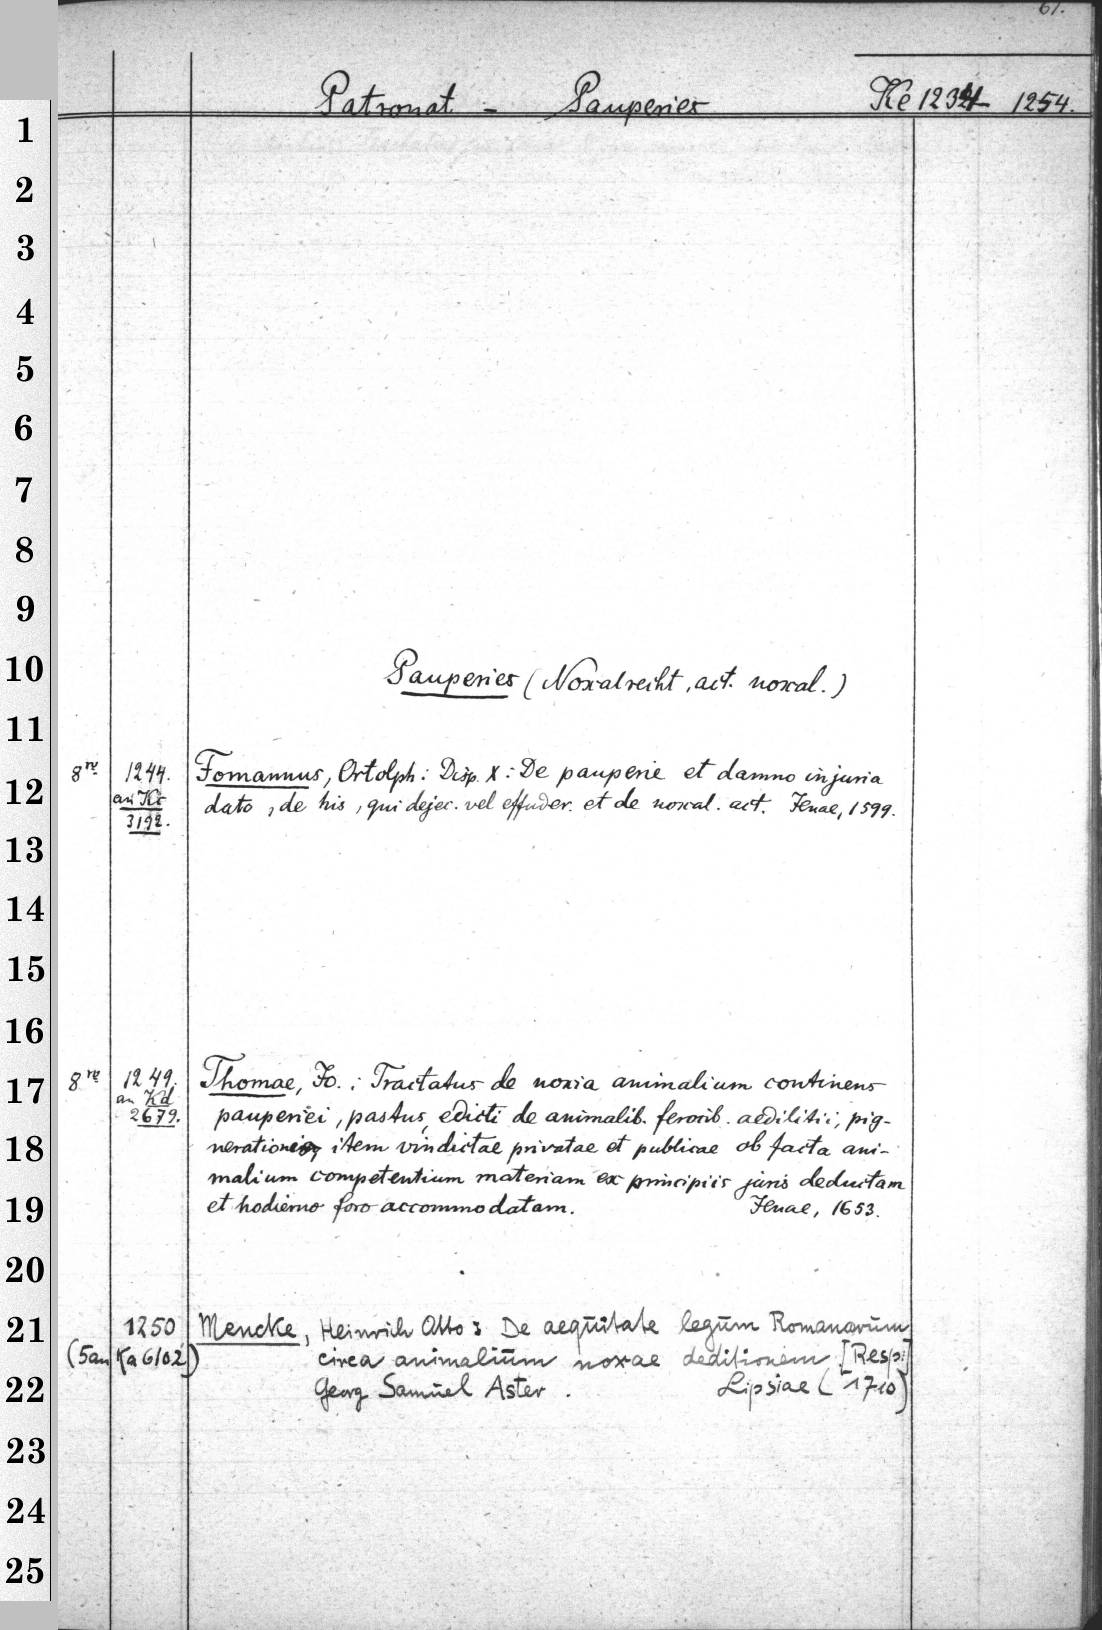 61.
Patronat - Pauperies Ke 1234 1254.
1
2
3
4
5
6
7
8
9
10
Pauperies (Noxalrecht, act. noxal.)
11
8re 1244. Fomannus, Ortolph: Disp. X: De pauperie et damno injuria
12
an Kc dato, de his, qui dejec. vel effuder. et de noxal. act. Jenae, 1599.
3192.
13
14
15
16
8re 1249. Thomae, Jo.: Tractatus de noxia animalium continens
17
an Kd
2679. pauperiei, pastus, edicti de animalib. ferocib. aedilitii, pig-
18
item vindictae privatae et publicae ob facta ani-
malium competentium materiam ex principiis juris deductam
19
et hodierno foro accommodatam. Jenae, 1653.
20
21
1250 Mencke, Heinrich Otto: De aequitate legum Romanorum
(5 an Ka 6102) circa animalium noxae deditionem [Resp:]
22
Georg Samuel Aster. Lipsiae (1710)
23
24
25